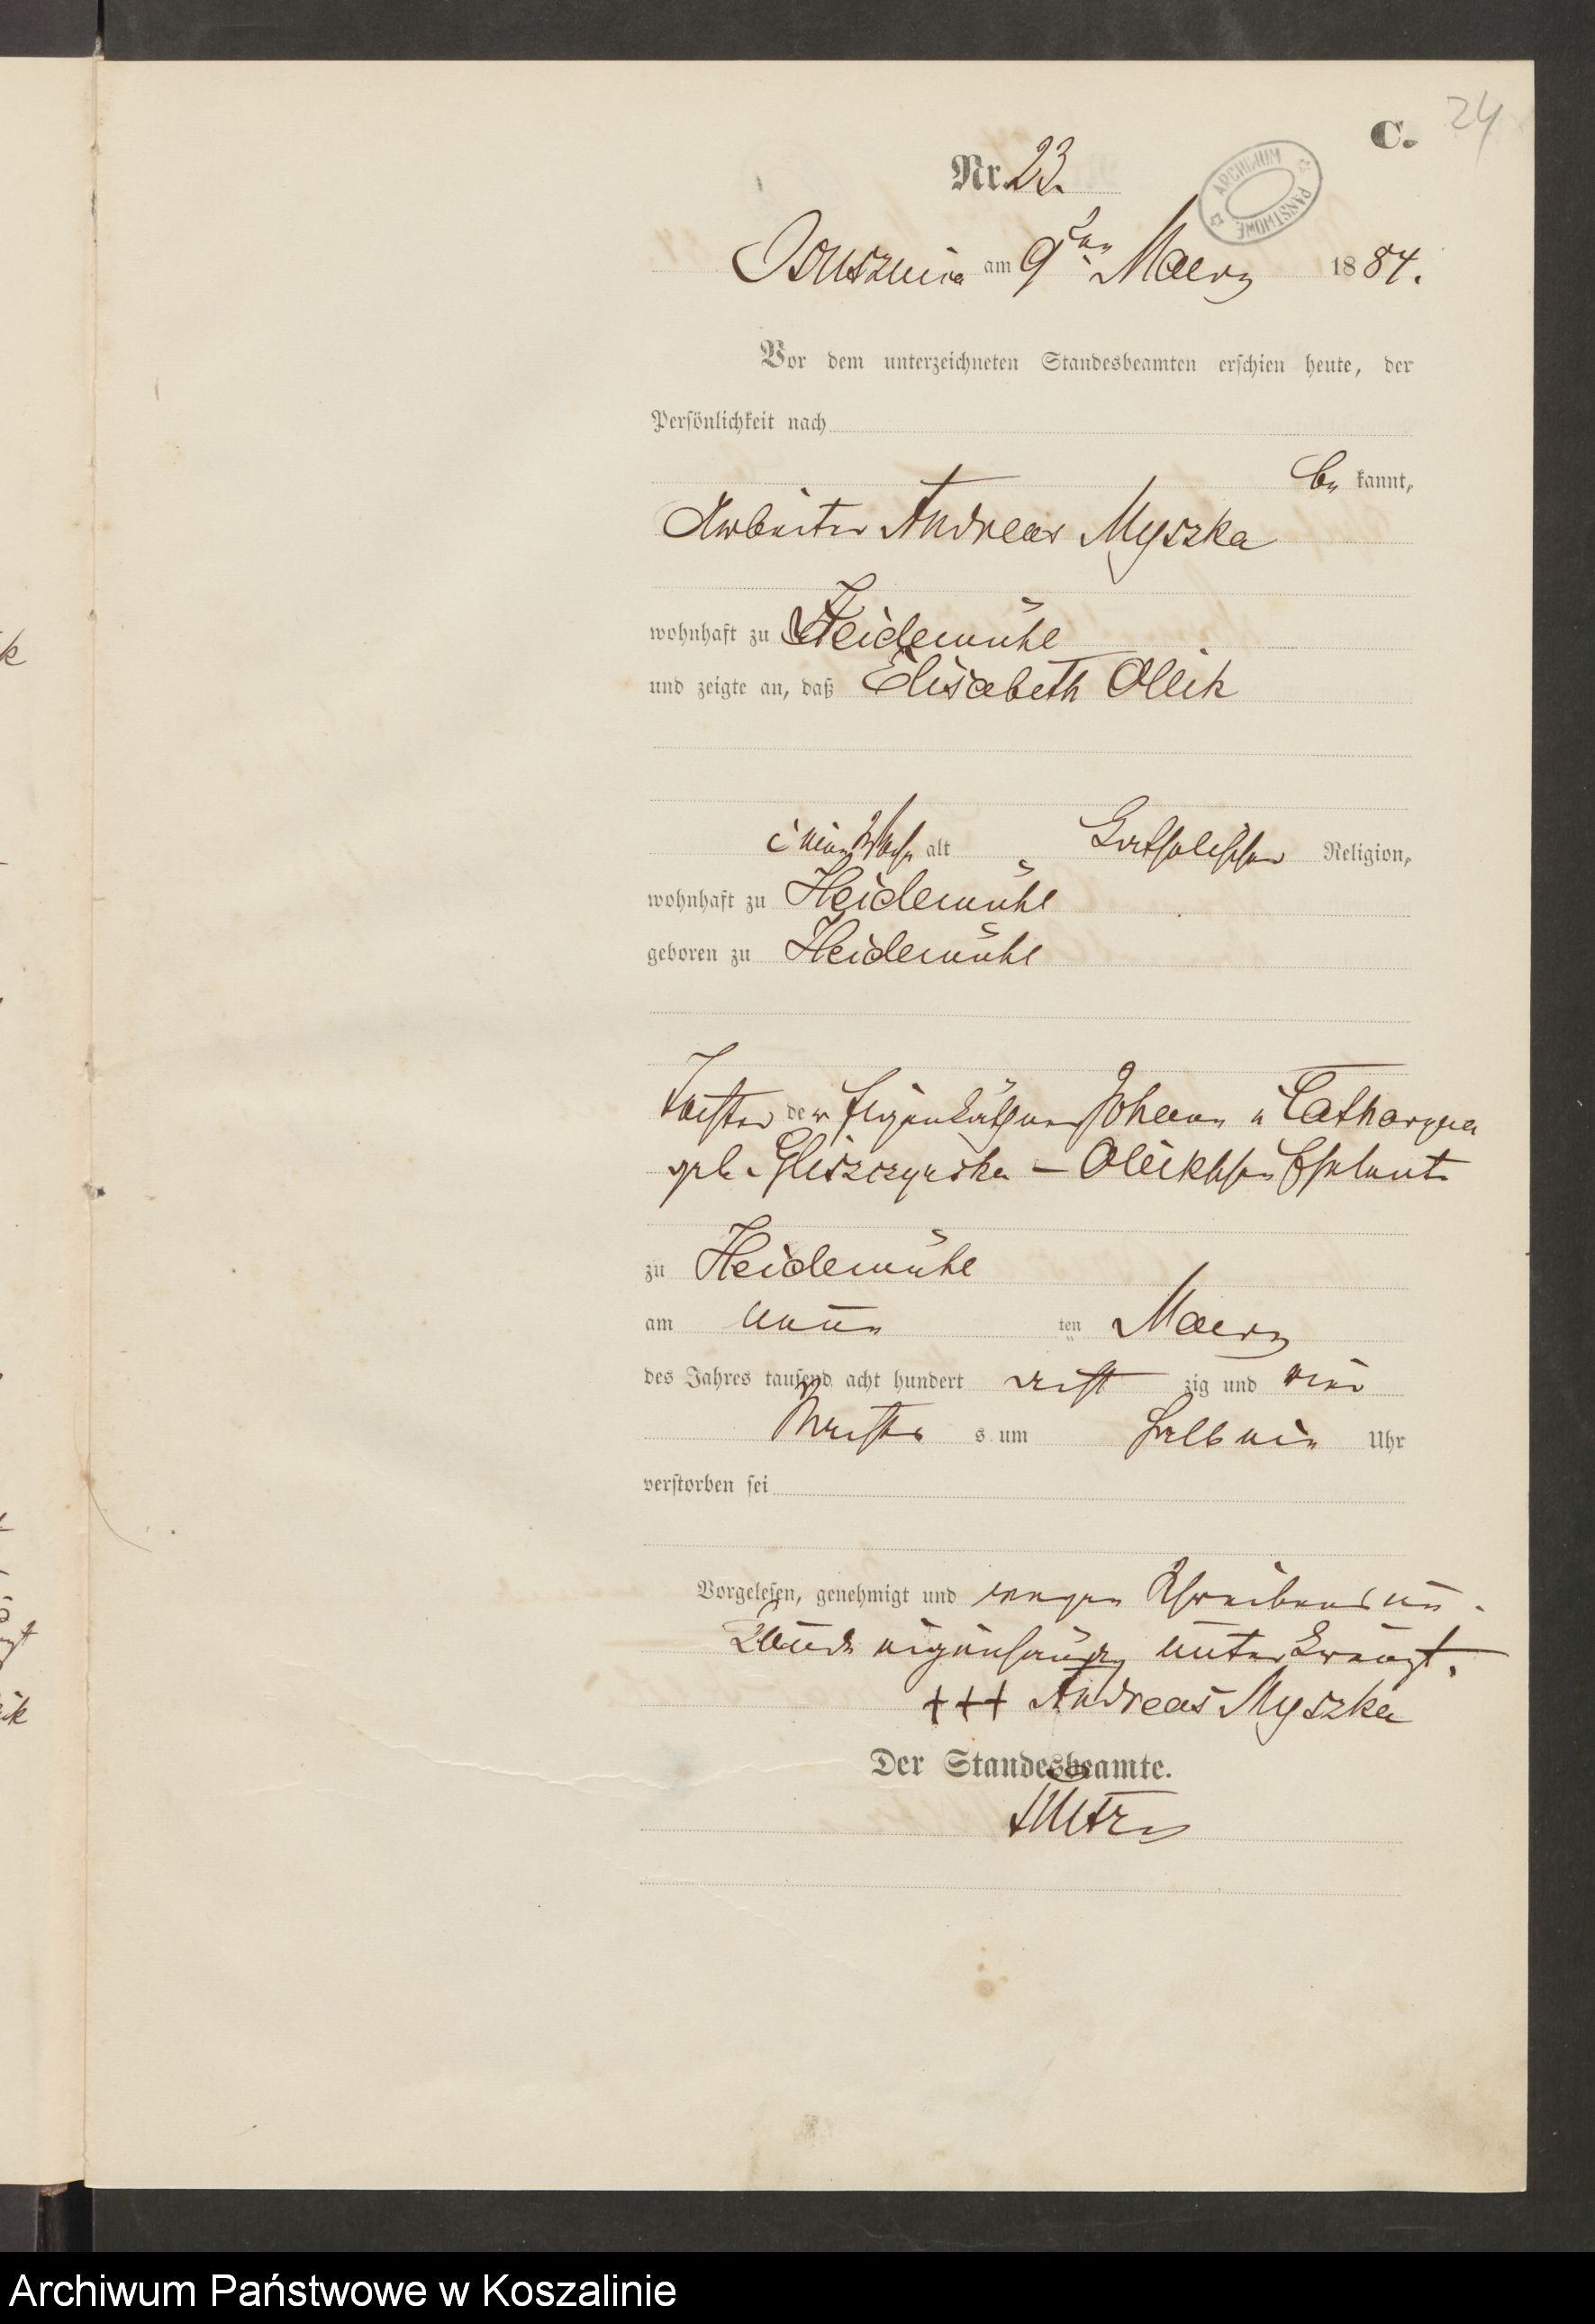 24
C.
Nr. 23.
ARCHIWUM PAŃSTWOWE
am 9ten Maerz 1884.
Vor dem unterzeichneten Standesbeamten erschien heute, der
Persönlichkeit nach
be kannt,
Arbeiter Andreas Myszka
wohnhaft zu Heidemühl
und zeigte an, daß Elisabeth Oleik
alt katholischer Religion,
wohnhaft zu Heidemühl
geboren zu Heidemühl
Tochter der Eigenkäthner Johann u Catharyna
geb. Gliszczynska – Oleikschen Eheleute
zu Heidemühl
am neun ten Maerz
des Jahres tausend acht hundert acht zig und vier
Nachts um halb ein Uhr
verstorben sei
Vorgelesen, genehmigt und wegen Schreibens un-
kunde eigenhändig unterkreuzt.
+++ Andreas Myszka
Der Standesbeamte.
Archiwum Państwowe w Koszalinie